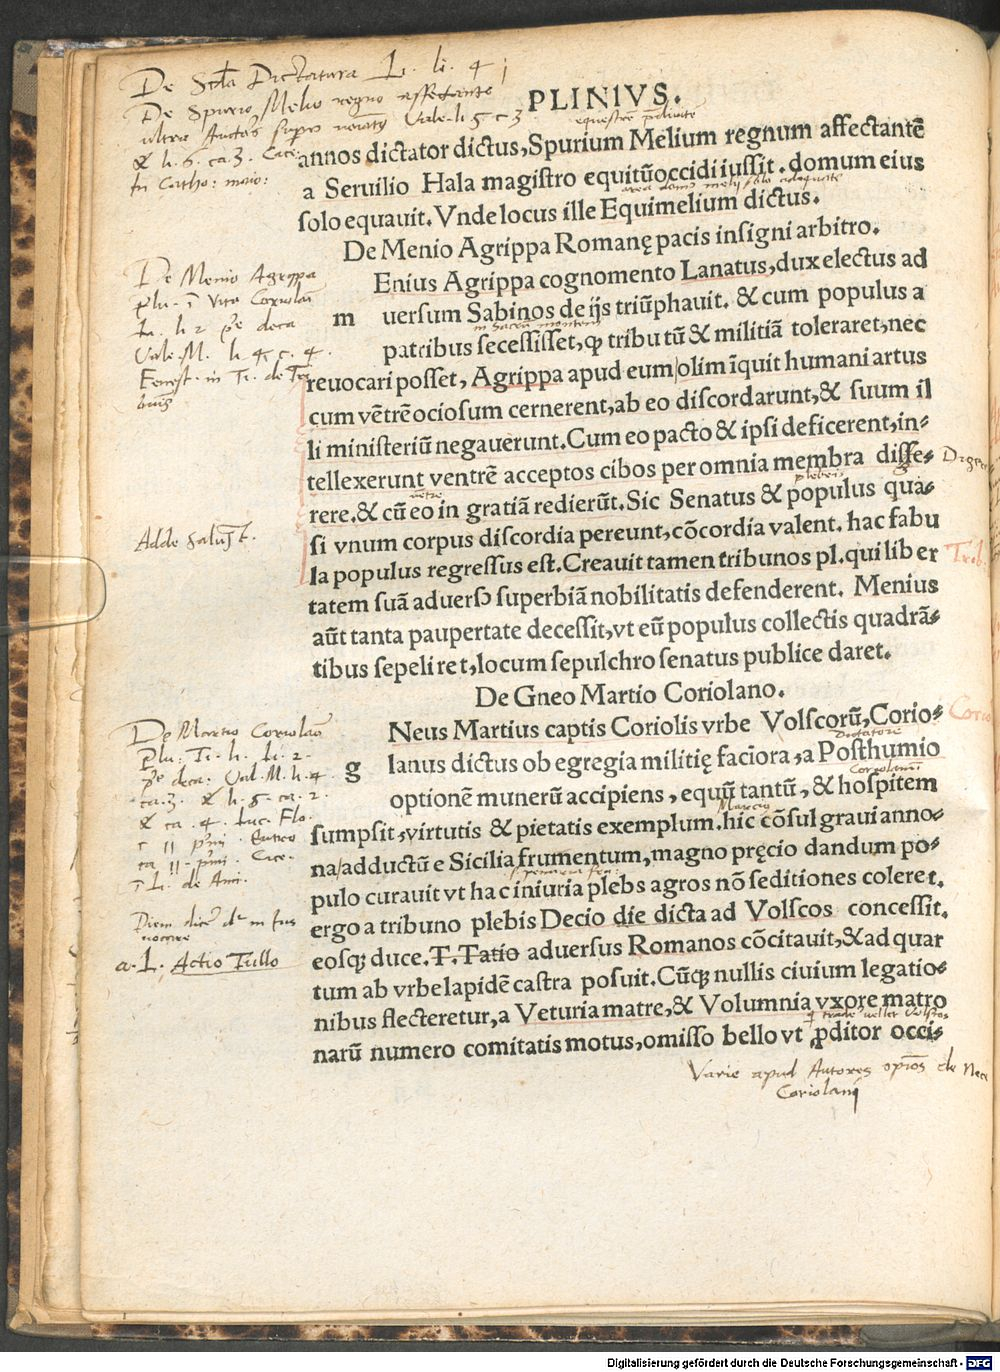 De Dictatura L. li. 4
De Spurio Melio regno affectante
PLINIVS.
annos dictator dictus,Spurium Melium regnum affectantē
a Seruilio Hala magistro equitūoccidi iussit.domum eius
solo equauit.Vnde locus ille Equimelium dictus.
De Menio Agrippa Romanę pacis insigni arbitro.
De Menio Agrippa
Enius Agrippa cognomento Lanatus,dux electus ad
m uersum Sabinos de ijs triūphauit. & cum populus a
in Sacrū montem
patribus secessisset,ꝙ tribu tū & militiā toleraret,nec
Vale. M. li. 4 c. 4.
reuocari posset, Agrippa apud eum/olim īquit humani artus
cum vētrē ociosum cernerent,ab eo discordarunt,& suum il
li ministeriū negauerunt.Cum eo pacto & ipsi deficerent,in⸗
tellexerunt ventrē acceptos cibos per omnia membra disse⸗
plebeis
rere.& cū eo in gratiā redierūt.Sic Senatus & populus qua⸗
si vnum corpus discordia pereunt,cōcordia valent. hac fabu
Adde Salust.
la populus regressus est.Creauit tamen tribunos pl.qui liber
tatem suā aduersɔ superbiā nobilitatis defenderent. Menius
aūt tanta paupertate decessit,vt eū populus collectis quadrā⸗
tibus sepeliret,locum sepulchro senatus publice daret.
De Gneo Martio Coriolano.
De Martio Coriolano
Neus Martius captis Coriolis vrbe Volscorū,Corio⸗
Dictatore
g lanus dictus ob egregia militię faciora,a Posthumio
Coriolanus
optionē munerū accipiens,equū tantū,& hospitem
Marcius
sumpsit,virtutis & pietatis exemplum.hic cōsul graui anno⸗
na/adductū e Sicilia frumentum,magno pręcio dandum po⸗
pulo curauit vt hac iniuria plebs agros nō seditiones coleret.
ergo a tribuno plebis Decio die dicta ad Volscos concessit.
eosqꝫ duce.T.Tatio aduersus Romanos cōcitauit,& ad quar
a. L. Actio Tullo
tum ab vrbe lapidē castra posuit.Cūqꝫ nullis ciuium legatio⸗
nibus flecteretur,a Veturia matre,& Volumnia vxore matro
narū numero comitatis motus,omisso bello vt ꝓditor occi⸗
Varie apud Autores de Nece
Coriolani
Digitalisierung gefördert durch die Deutsche Forschungsgemeinschaft - DFG